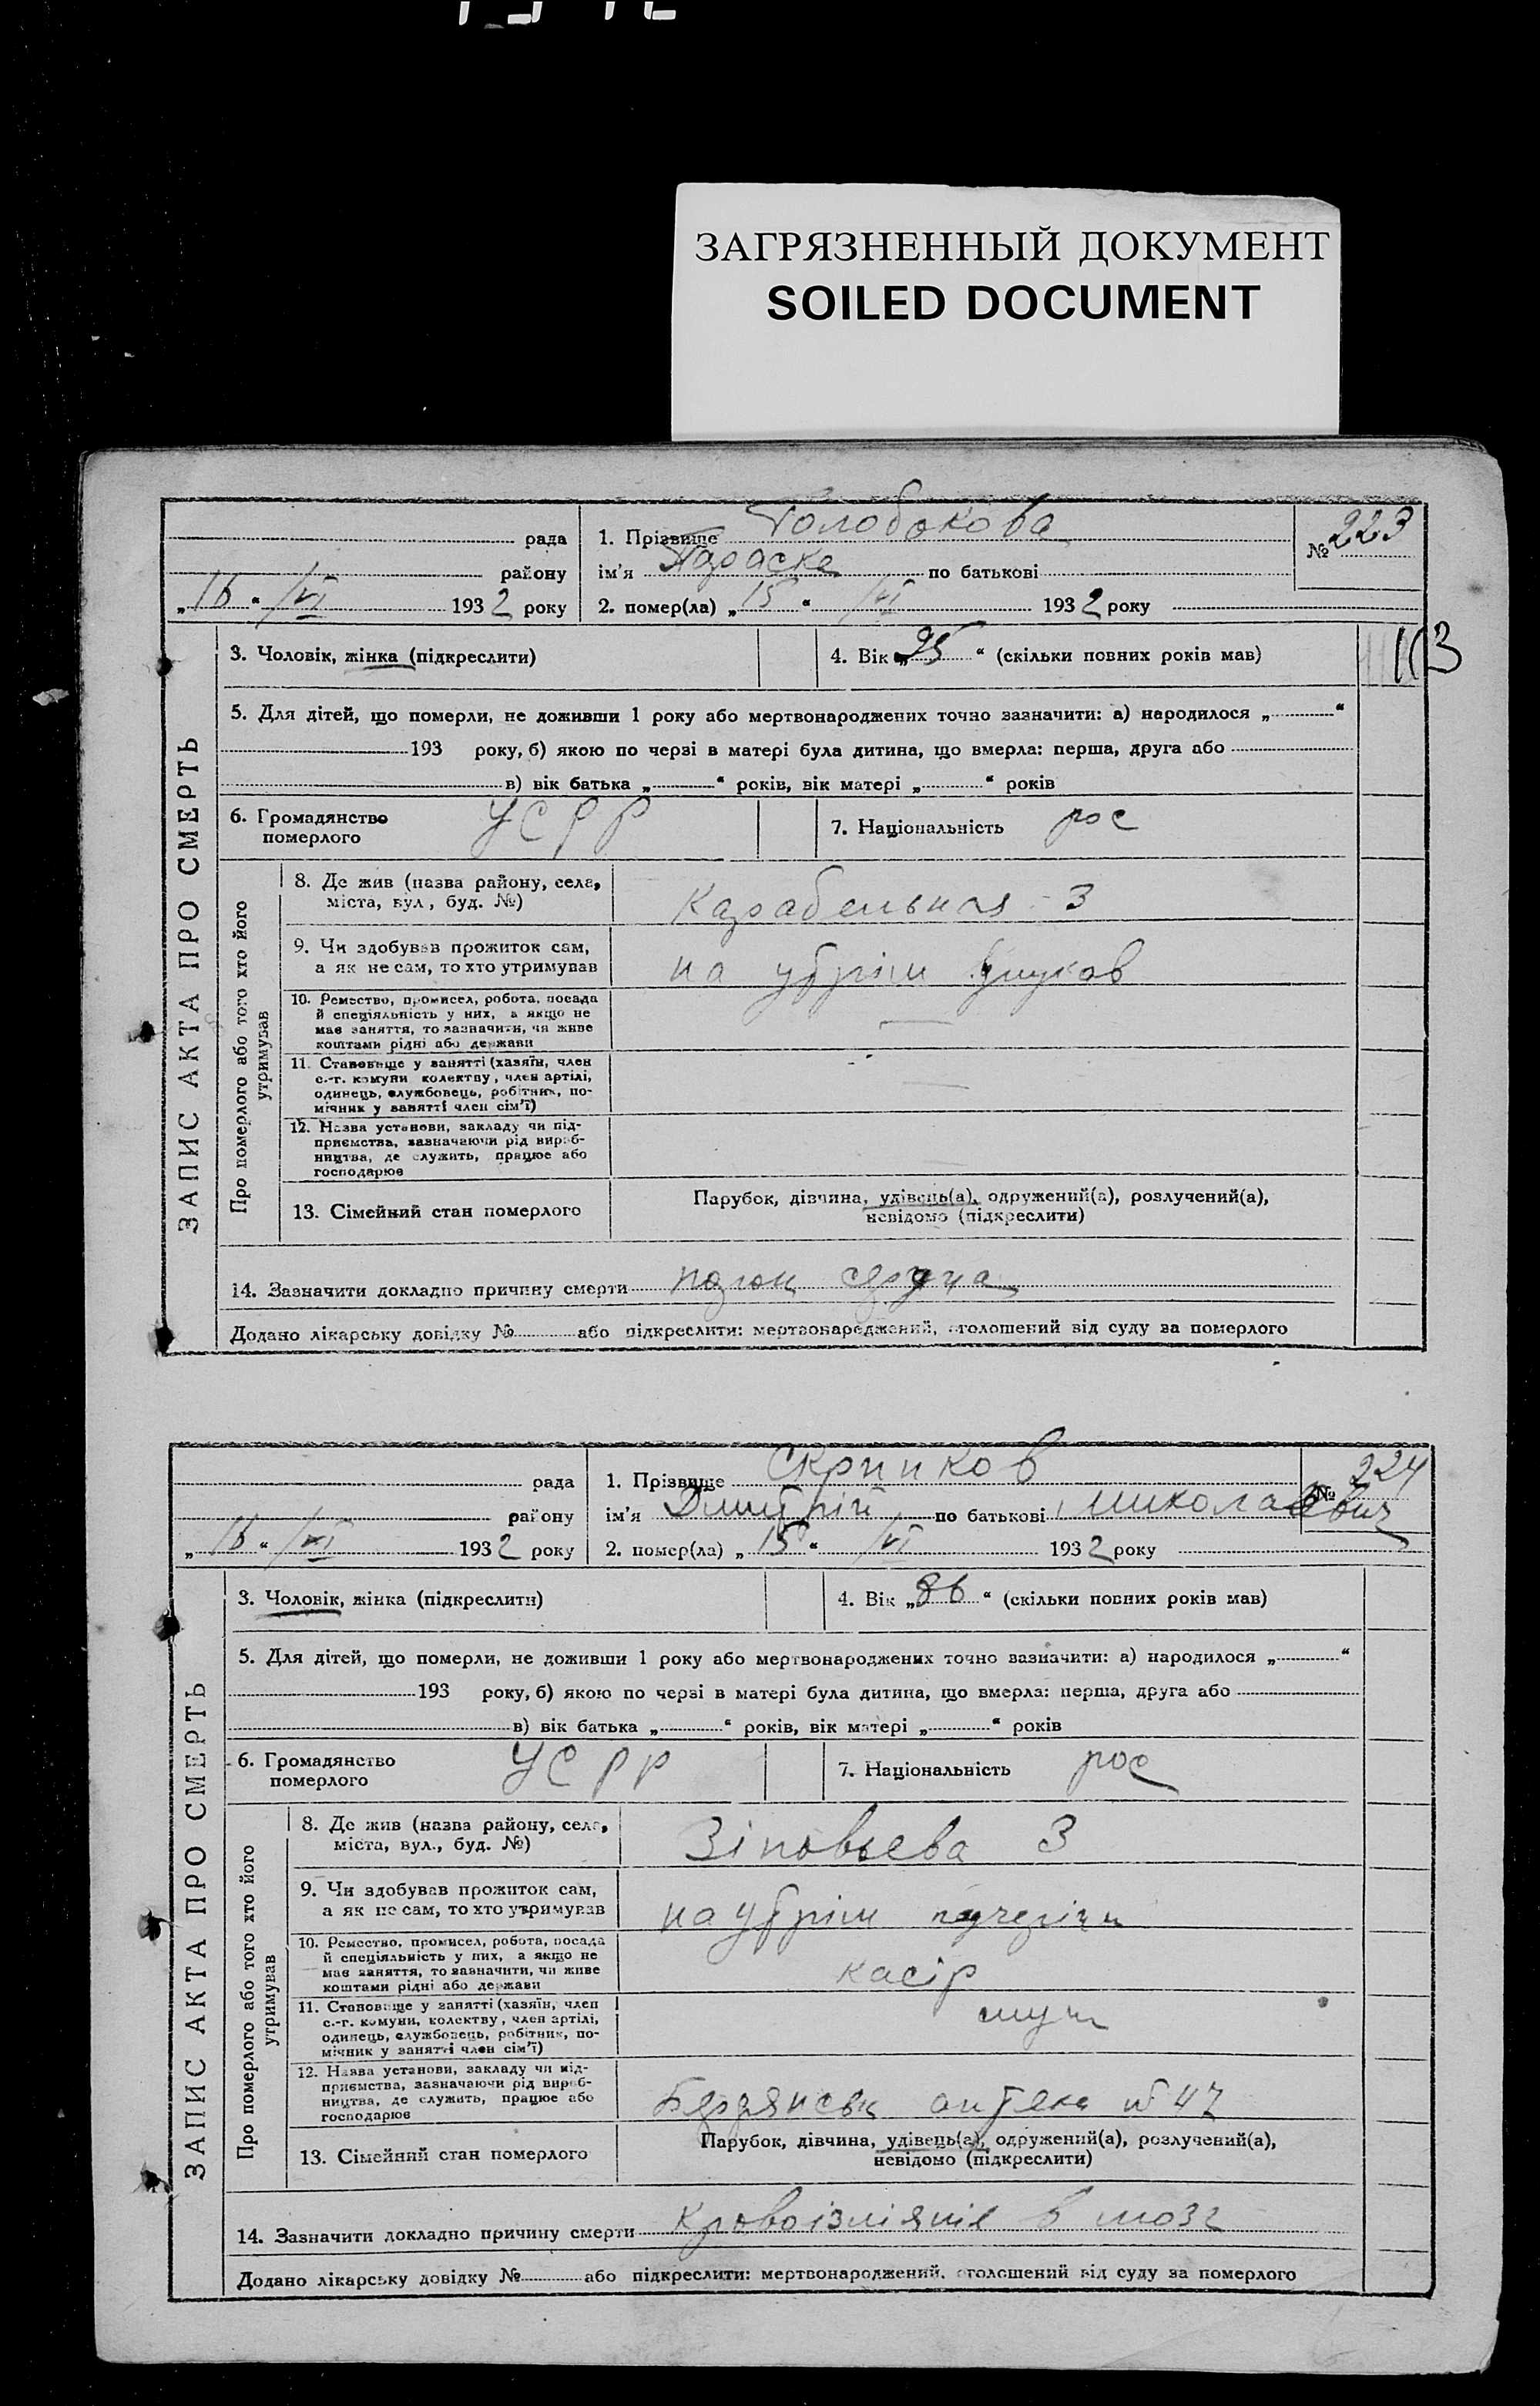 ЗАГРЯЗНЕННЫЙ ДОКУМЕНТ
SOILED DOCUMENT
рада
1. Прізвище Голобокова
№ 223
району
ім'я Параска по батькові
„16“ /VI 1932 року
2. помер(ла) „15“ /VI 1932 року
113
3. Чоловік, жінка (підкреслити)
4. Вік „95“ (скільки повних років мав)
5. Для дітей, що померли, не доживши 1 року або мертвонароджених точно зазначити: а) народилося „ “
193 року, б) якою по черзі в матері була дитина, що вмерла: перша, друга або
в) вік батька „ “ років, вік матері „ “ років
6. Громадянство
померлого
УСРР
7. Національність рос
ЗАПИС АКТА ПРО СМЕРТЬ
Про померлого або того хто його
утримував
8. Де жив (назва району, села,
міста, вул, буд. №)
Карабельная 3
9. Чи здобував прожиток сам,
а як не сам, то хто утримував
на утрім внуков
10. Ремество, промисел, робота, посада
й спеціяльність у них, а якщо не
має заняття, то зазначити, чи живе
коштами рідні або держави
—
11. Становище у занятті (хазяїн, член
с.-г. комуни колектву, член артілі,
одинець, службовець, робітник, по-
мічник у занятті член сім'ї)
—
12. Назва установи, закладу чи під-
приємства, зазначаючи рід вироб-
ництва, де служить, працює або
господарює
13. Сімейний стан померлого
Парубок, дівчина, удівець(а), одружений(а), розлучений(а),
невідомо (підкреслити)
14. Зазначити докладно причину смерти
Додано лікарську довідку № або підкреслити: мертвонароджений, оголошений від суду за померлого
рада
1. Прізвище Скрипков
№ 224
району
ім'я Дмитрій по батькові Миколаевич
„16“ /VI 1932 року
2. помер(ла) „15“ /VI 1932 року
3. Чоловік, жінка (підкреслити)
4. Вік „86“ (скільки повних років мав)
5. Для дітей, що померли, не доживши 1 року або мертвонароджених точно зазначити: а) народилося „ “
193 року, б) якою по черзі в матері була дитина, що вмерла: перша, друга або
в) вік батька „ “ років, вік матері „ “ років
6. Громадянство
померлого
УСРР
7. Національність рос
ЗАПИС АКТА ПРО СМЕРТЬ
Про померлого або того хто його
утримував
8. Де жив (назва району, села,
міста, вул., буд. №)
Зіновьева 3
9. Чи здобував прожиток сам,
а як не сам, то хто утримував
на утрім
10. Ремество, промисел, робота, посада
й спеціяльність у них, а якщо не
має заняття, то зазначити, чи живе
коштами рідні або держави
касір
11. Становище у занятті (хазяїн, член
с.-г. комуни, колектву, член артілі,
одинець, службовець, робітник, по-
мічник у занятті член сім'ї)
12. Назва установи, закладу чи під-
приємства, зазначаючи рід вироб-
ництва, де служить, працює або
господарює
Бердянськ аптека № 47
13. Сімейний стан померлого
Парубок, дівчина, удівець(а), одружений(а), розлучений(а),
невідомо (підкреслити)
14. Зазначити докладно причину смерти Кровоізліяніе в мозг
Додано лікарську довідку № або підкреслити: мертвонароджений, оголошений від суду за померлого